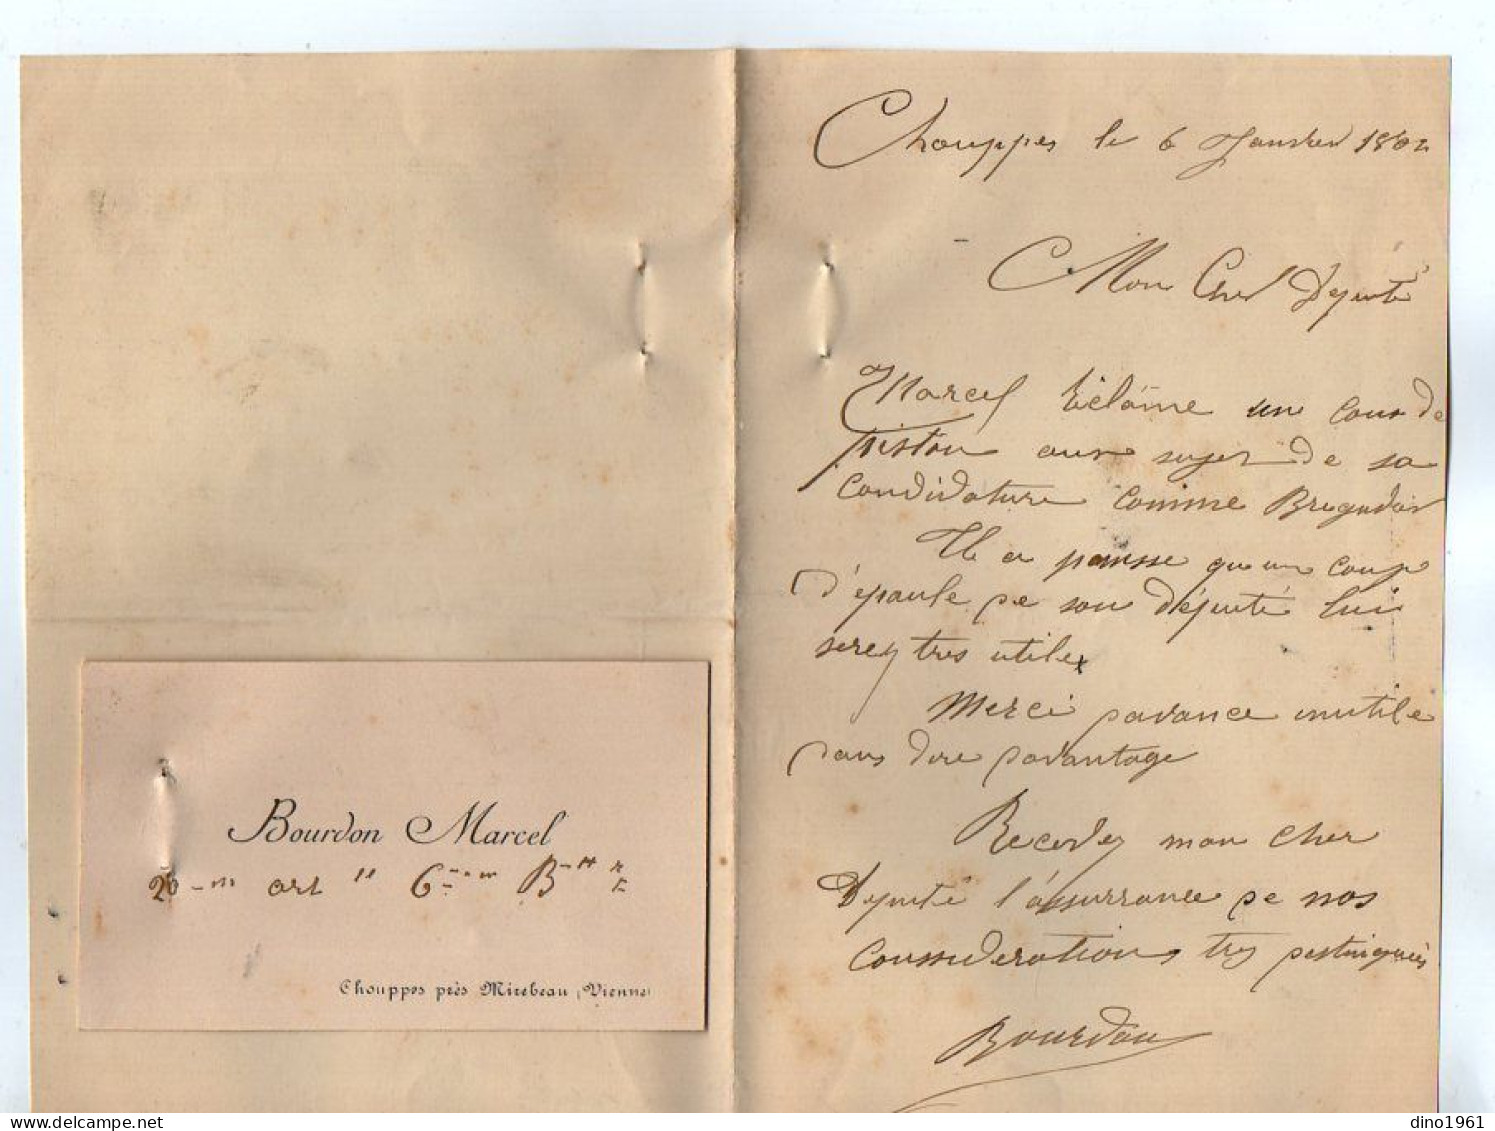 Chouppes le 6 Janvier 1892
Mon Cher Députe
Marcel réclame un coup de
piston aux sujet de sa
candidature comme Bregadier
Il a pensse que un coup
d'épaule de son députe lui
serey tres utile
Merci davance inutile
dans dire davantage
Recevez mon cher
Députe l'assurrance de nos
conssiderations tres destingueés
Bourdon
Bourdon Marcel
20 me art ie 6 me B rie
Chouppes près Mirebeau (Vienne)
dino1961